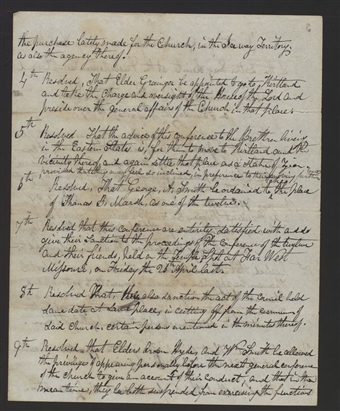 the purchase lately made for the Church, in the Iowa Territory,
as also the agency thereof.
4th Resolved, That Elder Granger be appointed to go to Kirtland
and take the charge and oversight of the House of the Lord and
preside over the general affairs of the Church in that place.
5th Resolved That the advice of this conference to the Brethren living
in the Eastern States is, for them to move to Kirtland and the
vicinity thereof, and again settle that place as a Stake of Zion
provided they feel so inclined, in preference to their
6th Resolved, That George A. Smith be ordained to the place
of Thomas B. Marsh, as one of the twelve.
7th Resolved that this conference are entirely satisfied with and do
give their sanction to the proceedings of the Conference of the twelve
and their friends, held on the Temple Spot at Far West
Missouri, on Friday the 26th April last.
8th Resolved That, they also sanction the act of the Council held
same date and place, in cutting off from the communion of
said Church, certain persons mentioned in the minutes thereof.
9th Resolved, that Elders Orson Hyde, and Wm Smith be allowed
the privilege of appearing personally before the next general conference
of the church to give an account of their conduct, and that in the
mean time, they be both suspended from exercising the functions